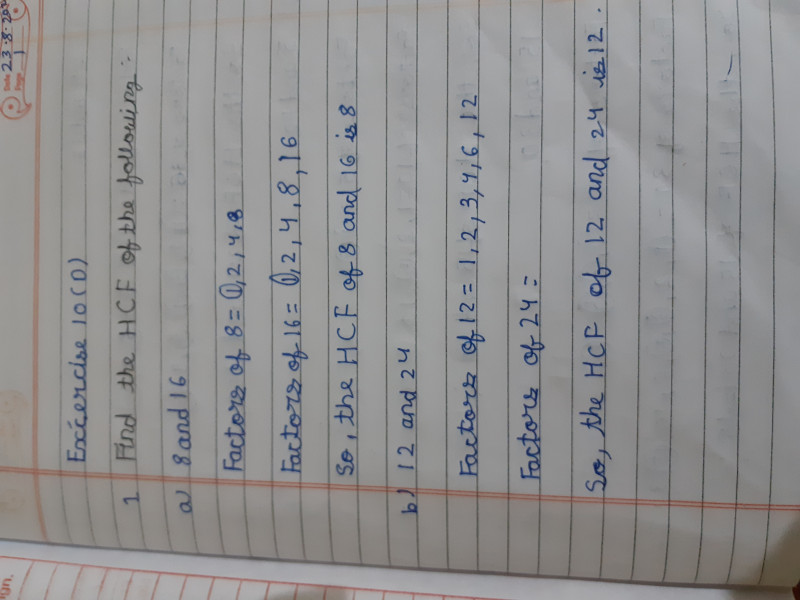 Date 23.8.20
Page 1
Excercise 10(D)
1 Find the HCF of the following :-
a) 8 and 16
Factors of 8 = 1, 2, 4, 8
Factors of 16 = 1, 2, 4, 8, 16
So, the HCF of 8 and 16 is 8
b) 12 and 24
Factors of 12 = 1, 2, 3, 4, 6, 12
Factors of 24 =
So, the HCF of 12 and 24 is 12.